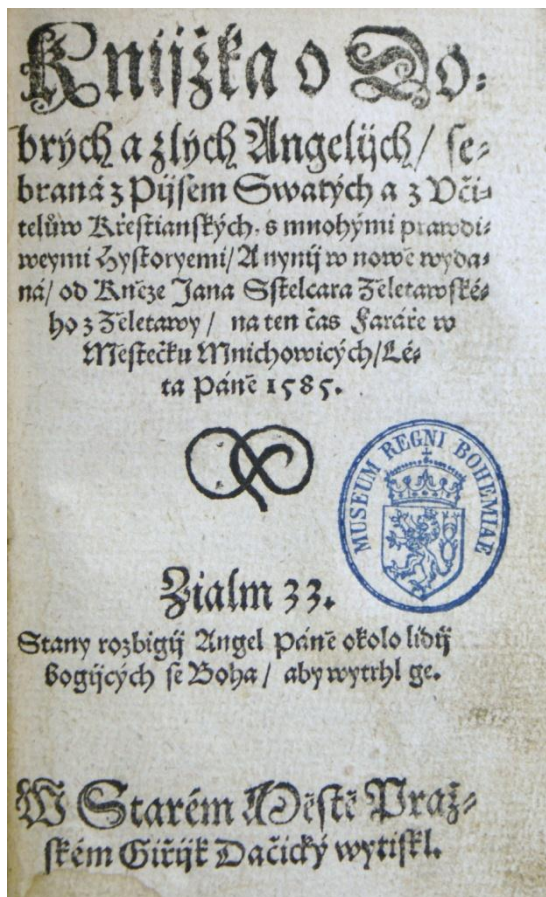 Knijžka o Do-
brých a zlých Angelijch/ se-
braná z Pijsem Swatých a z Vči-
telůw Křestianských, s mnohými prawdi-
weymi Hystoryemi/ A nynij w nowě wyda-
ná/ od Kněze Jana Sstelcara Želetawské-
ho z Želetawy/ na ten čas Faráře w
Městečku Mnichowicých/ Lé-
ta Páně 1585.
MUSEUM REGNI BOHEMIAE
Žialm 33.
Stany rozbigij Angel Páně okolo lidij
bogijcých se Boha/ aby wytrhl ge.
W Starém Městě Praž-
ském Giřijk Dačický wytiskl.